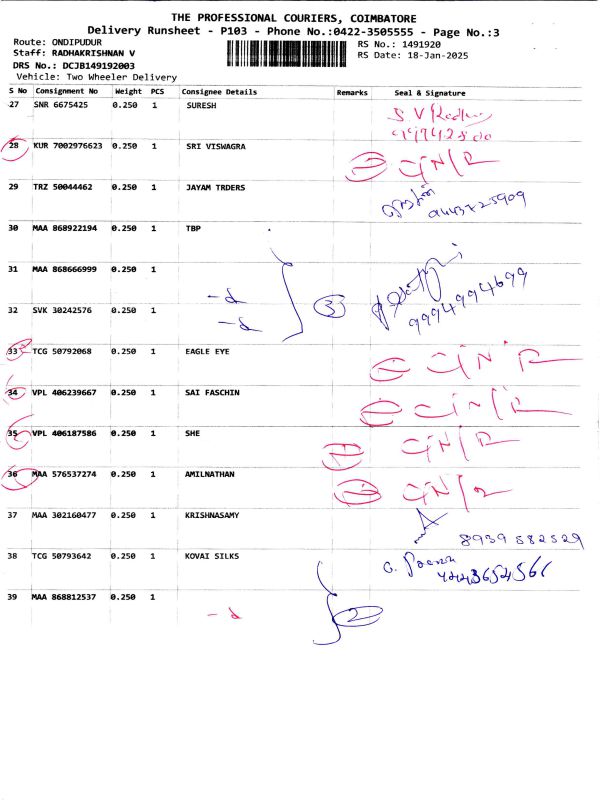 THE PROFESSIONAL COURIERS, COIMBATORE
Delivery Runsheet - P103 - Phone No.:0422-3505555 - Page No.:3
Route: ONDIPUDUR
RS No.: 1491920
Staff: RADHAKRISHNAN V
RS Date: 18-Jan-2025
DRS No.: DCJB149192003
Vehicle: Two Wheeler Delivery
S No Consignment No Weight PCS Consignee Details Remarks Seal & Signature
27 SNR 6675425 0.250 1 SURESH
28 KUR 7002976623 0.250 1 SRI VISWAGRA
29 TRZ 50044462 0.250 1 JAYAM TRDERS
30 MAA 868922194 0.250 1 TBP
31 MAA 868666999 0.250 1
-d
3
9994994699
32 SVK 30242576 0.250 1
-d
33 TCG 50792068 0.250 1 EAGLE EYE
34 VPL 406239667 0.250 1 SAI FASCHIN
35 VPL 406187586 0.250 1 SHE
36 MAA 576537274 0.250 1 AMILNATHAN
37 MAA 302160477 0.250 1 KRISHNASAMY
8939582529
38 TCG 50793642 0.250 1 KOVAI SILKS
39 MAA 868812537 0.250 1
-d
2